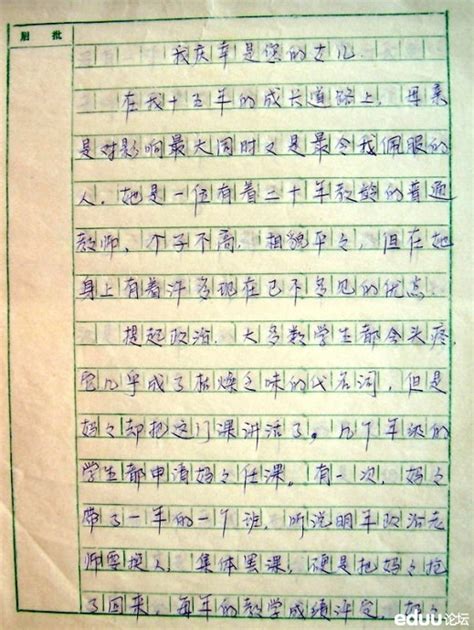 眉 批
我庆幸是您的女儿
在我十五年的成长道路上，母亲
是对影响最大同时又是最令我佩服的
人。她是一位有着二十年教龄的普通
教师，个子不高，相貌平々，但在她
身上有着许多现在已不多见的优点。
提起政治，大多数学生都会头疼，
它几乎成了枯燥乏味的代名词，但是
妈々却把这门课讲活了。几个年级的
学生都申请妈々任课。有一次，妈々
带了一年的一个班，听说明年政治老
师要换人，集体罢课，硬是把妈々抢
了回来，每年的教学成绩评定，妈々
eduu论坛